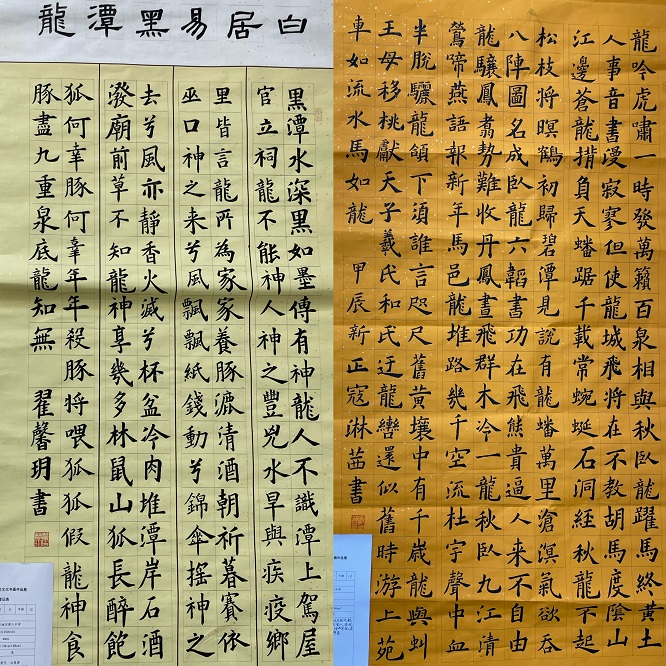 白居易黑潭龍
黑潭水深黑如墨傳有神龍人不識潭上駕屋
官立祠龍不能神人神之豐兇水旱與疾疫鄉
里皆言龍所為家家養豚漉清酒朝祈暮賽依
巫口神之來兮風飄飄紙錢動兮錦傘搖神之
去兮風亦靜香火滅兮杯盆冷肉堆潭岸石酒
潑廟前草不知龍神享幾多林鼠山狐長醉飽
狐何幸豚何辜年年殺豚將喂狐狐假龍神食
豚盡九重泉底龍知無 翟馨玥書
龍吟虎嘯一時發萬籟百泉相與秋臥龍躍馬終黃土
人事音書漫寂寥但使龍城飛將在不教胡馬度陰山
江邊蒼龍揹負天蟠踞千載常蜿蜒石洞經秋龍不起
松枝將暝鶴初歸碧潭見說有龍蟠萬里滄溟氣欲吞
八陣圖名成臥龍六韜書功在飛熊貴逼人來不自由
龍驤鳳翥勢難收丹鳳晝飛群木冷一龍秋臥九江清
鶯啼燕語報新年馬邑龍堆路幾千空流杜宇聲中血
半脫驪龍頷下須誰言咫尺舊黃壤中有千歲龍與虯
王母移桃獻天子羲氏和氏迂龍轡還似舊時游上苑
車如流水馬如龍 甲辰新正寇淋茁書